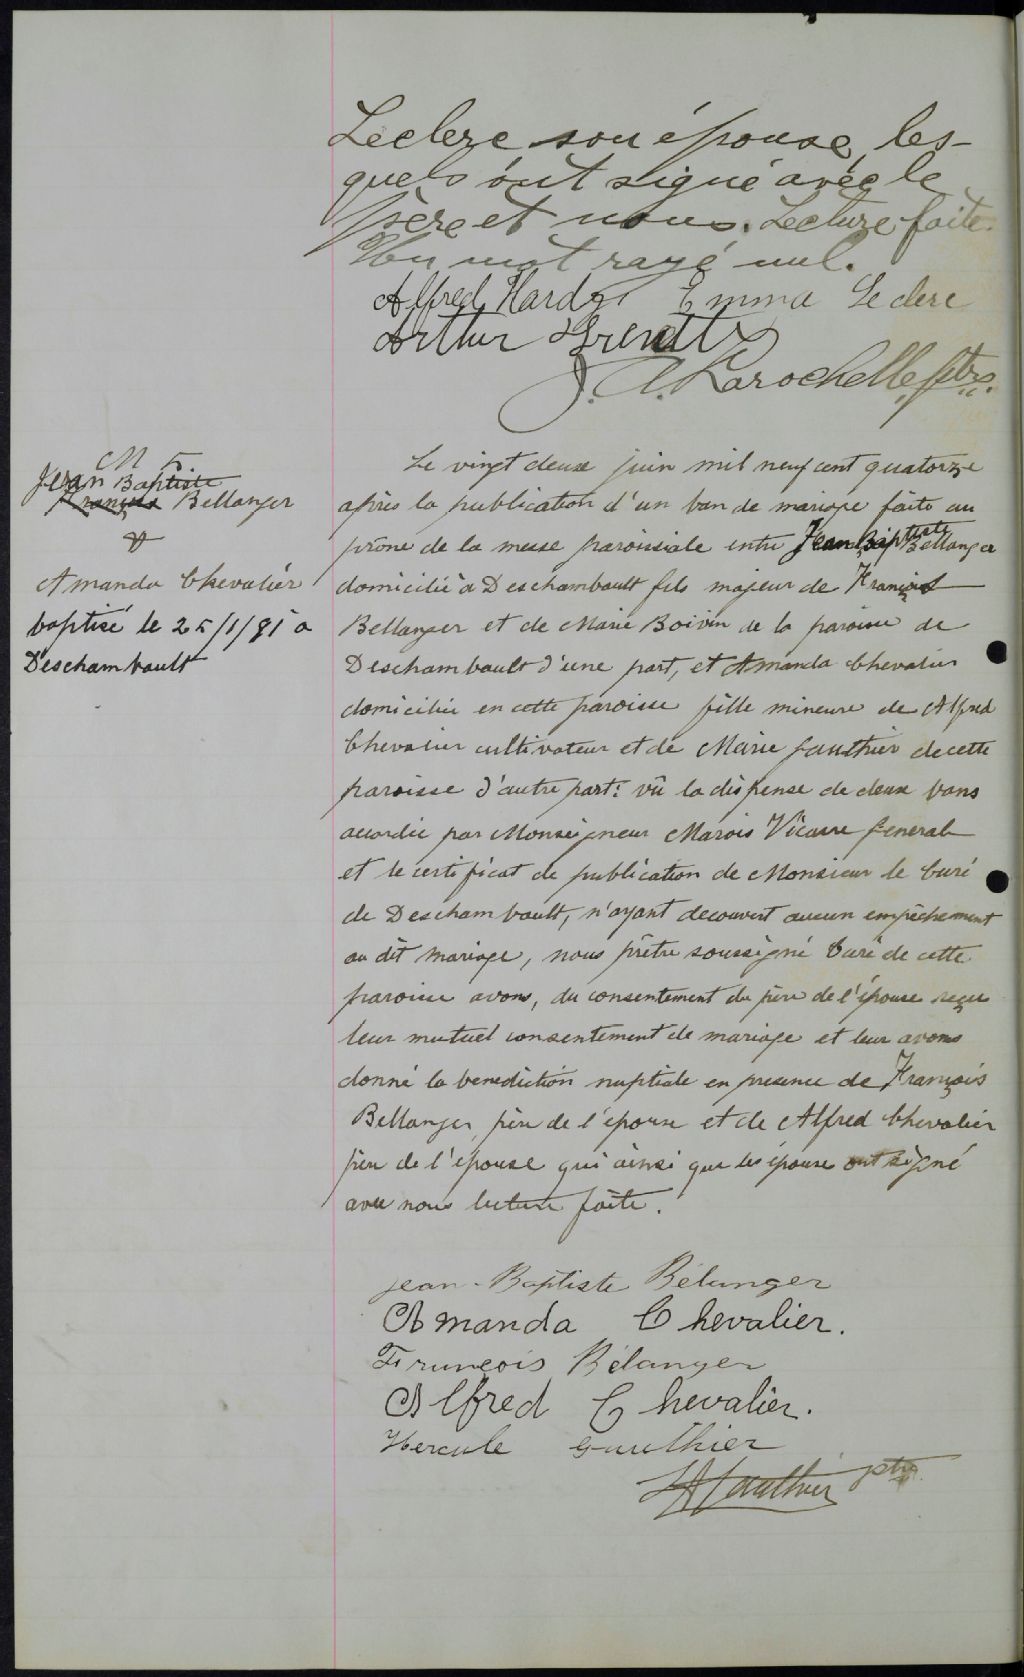 Leclerc son épouse, les-
quels ont signé avec le
père et nous. Lecture faite.
Un mot rayé nul.
Alfred Hardy Emma Leclerc
Arthur
J. A. Larochelle ptre.
M 5
Jean Baptiste
François Bellanger
&
Amanda Chevalier
baptisé le 25/1/91 à
Deschambault
Le vingt deux juin mil neuf cent quatorze
après la publication d'un ban de mariage faite au
prône de la messe paroissiale entre Jean Baptiste Bellanger
domicilié à Deschambault fils majeur de François
Bellanger et de Marie Boivin de la paroisse de
Deschambault d'une part, et Amanda Chevalier
domiciliée en cette paroisse fille mineure de Alfred
Chevalier cultivateur et de Marie Gauthier de cette
paroisse d'autre part: vû la dispense de deux bans
accordée par Monseigneur Marois Vicaire General
et le certificat de publication de Monsieur le Curé
de Deschambault, n'ayant decouvert aucun empêchement
au dit mariage, nous prêtre soussigné Curé de cette
paroisse avons, du consentement du père de l'épouse reçu
leur mutuel consentement de mariage et leur avons
donné la benediction nuptiale en presence de François
Bellanger père de l'époux et de Alfred Chevalier
père de l'épouse qui ainsi que les époux ont signé
avec nous lecture faite.
Jean-Baptiste Bélanger
Amanda Chevalier.
François Bélanger
Alfred Chevalier.
Hercule Gauthier
Gauthier ptre